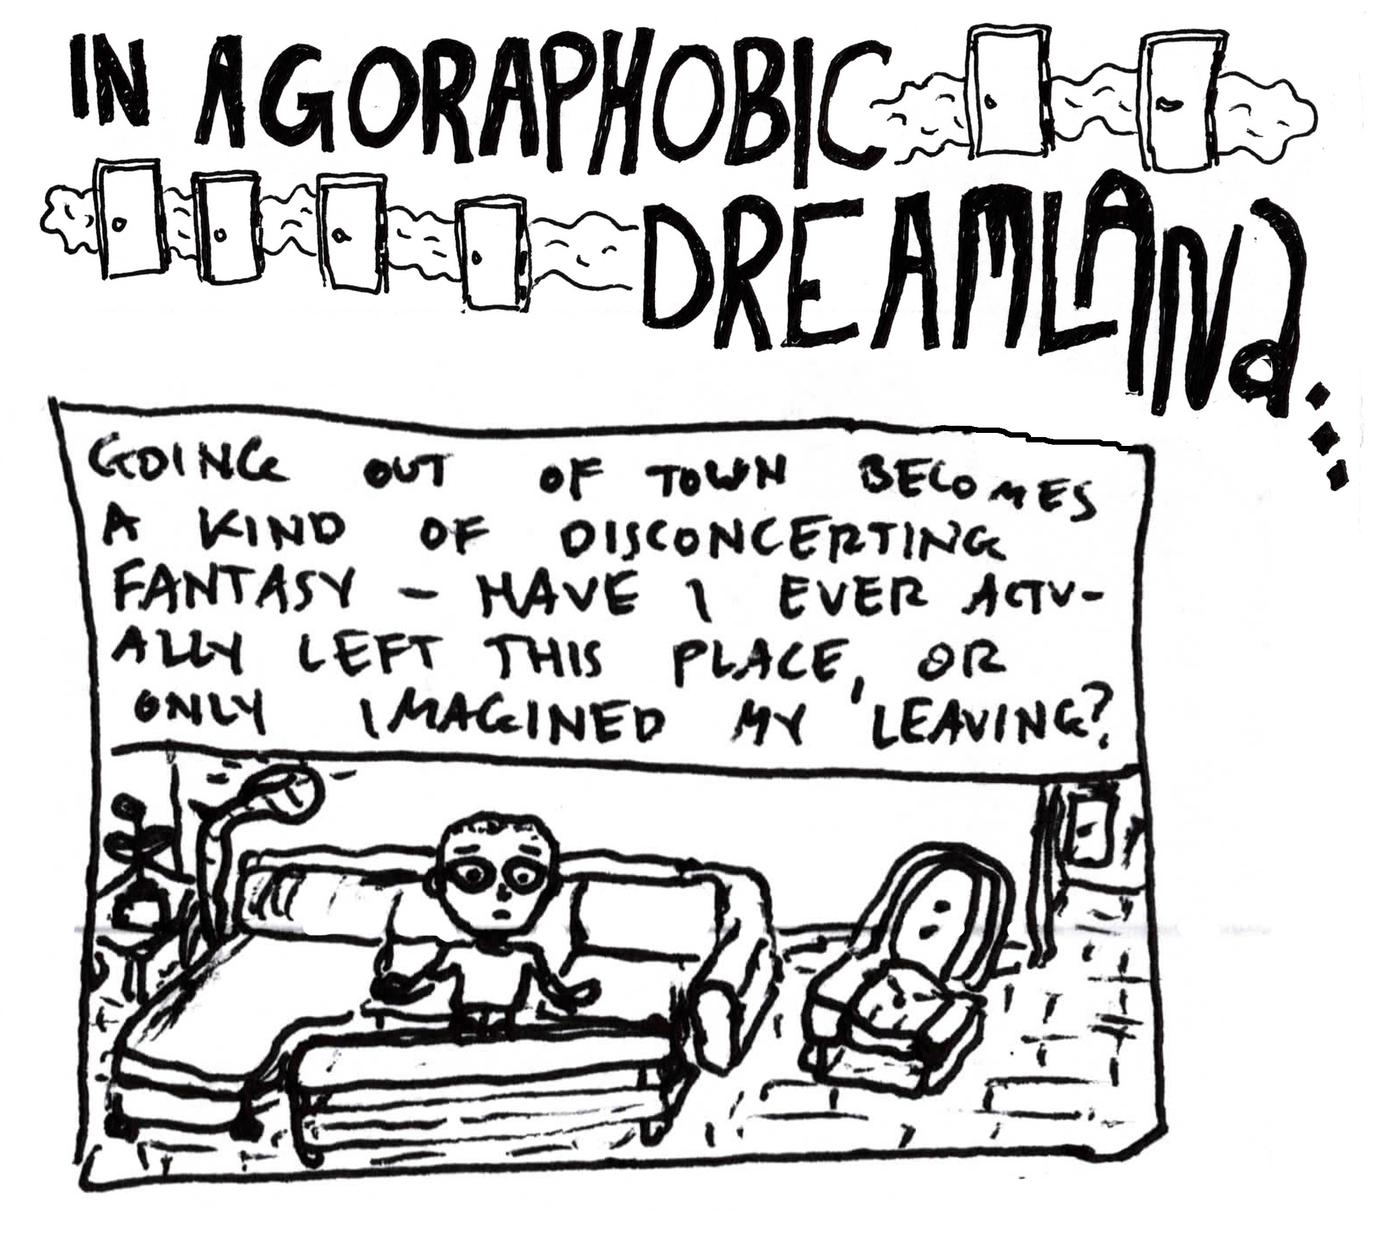 IN AGORAPHOBIC
DREAMLANd...
GOING OUT OF TOWN BECOMES
A KIND OF DISCONCERTING
FANTASY - HAVE I EVER ACTU-
ALLY LEFT THIS PLACE, OR
ONLY IMAGINED MY LEAVING?